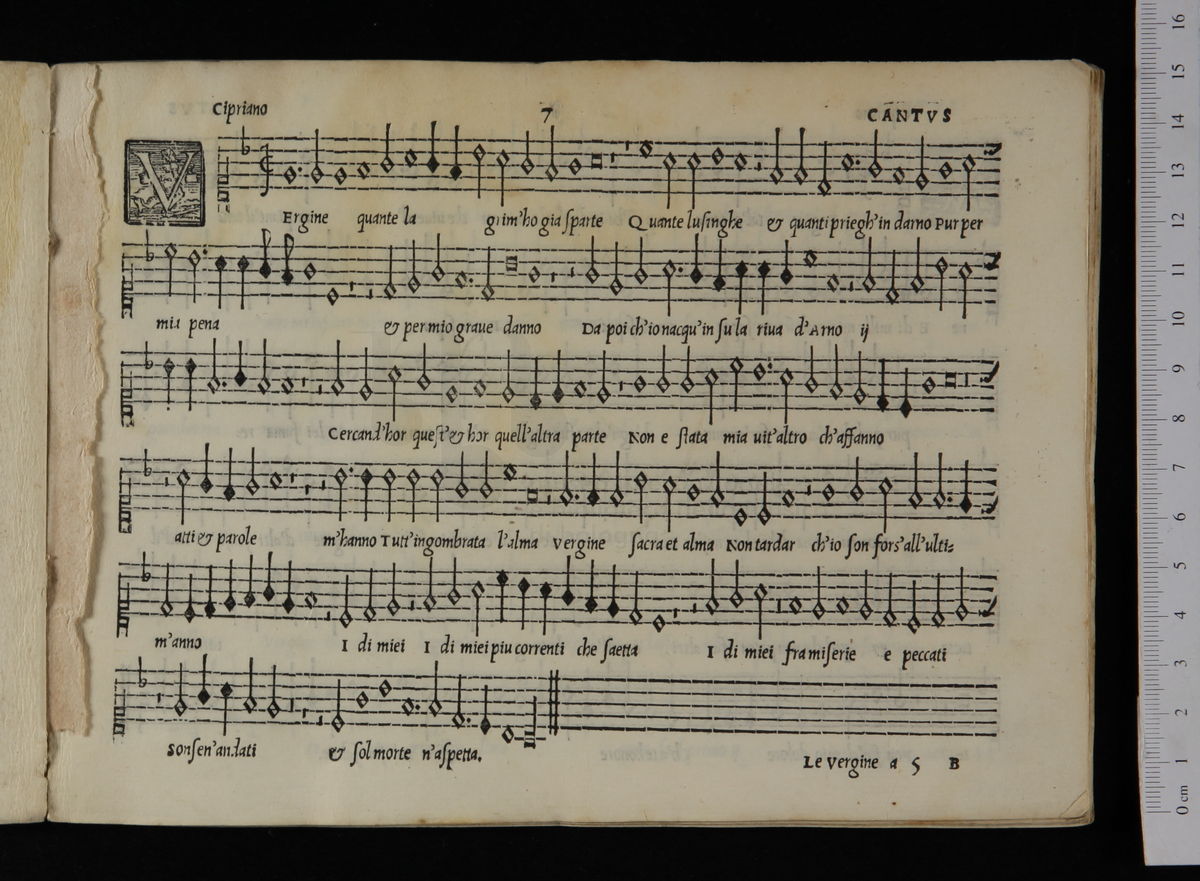 Cipriano 7 CANTVS
V Ergine quante la grim'ho gia sparte Quante lusinghe & quanti priegh'in darno Pur per
mia pena & per mio graue danno Da poi ch'io nacqu'in su la riua d'Arno ij
Cercand'hor quest'& hor quell'altra parte Non e stata mia uit'altro ch'affanno
atti & parole m'hanno Tutt'ingombrata l'alma Vergine sacra et alma Non tardar ch'io son fors'all'ulti=
m'anno I di miei I di miei piu correnti che saetta I di miei fra miserie e peccati
Sonsen'andati & sol morte n'aspetta.
Le Vergine a 5 B
16
15
14
13
12
11
10
9
8
7
6
5
4
3
2
1
0 cm